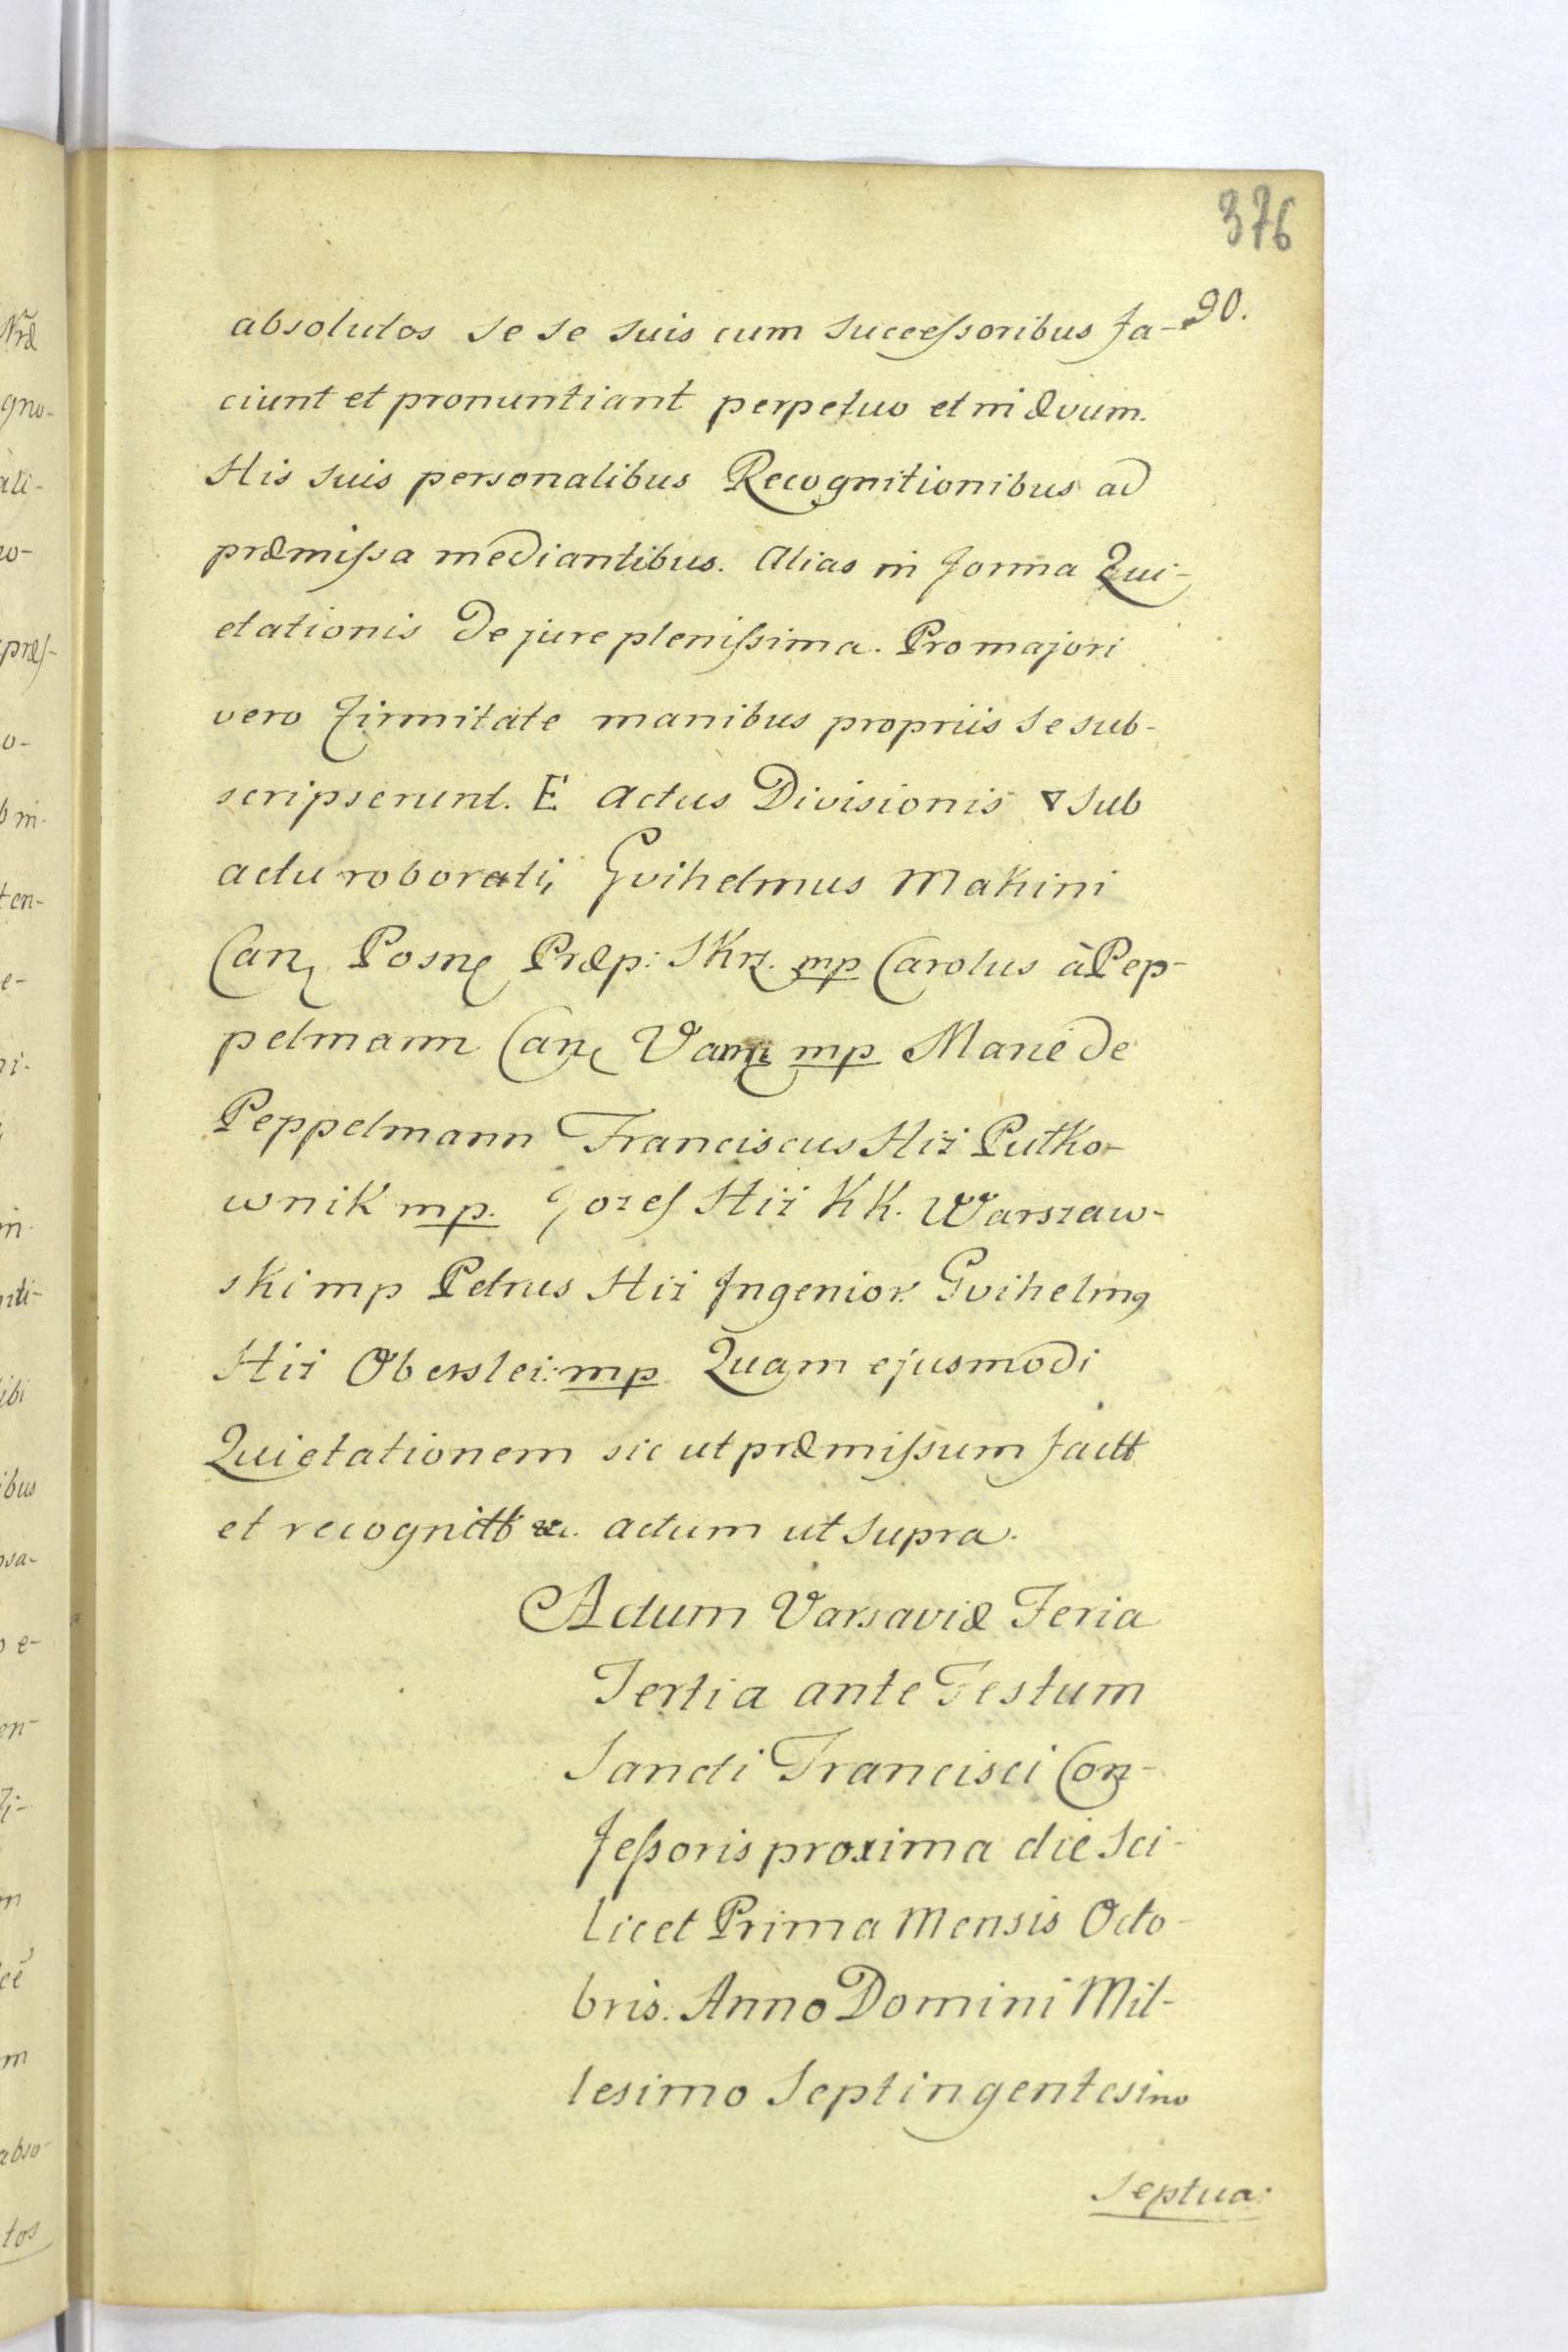 376
90.
absolutos se se suis cum Successoribus fa-
ciunt et pronuntiant perpetuo et in ævum.
His suis personalibus Recognitionibus ad
præmissa mediantibus. Alias in forma Qui-
etationis de jure plenissima. Pro majori
vero firmitate manibus propriis se sub-
scripserunt. E actus Divisionis sub
actu roborati, Gvihelmus Makini
Can Posn Præp: Skrz. mp Carolus à Pep-
pelmann Can mp Marie de
Peppelmann Franciscus Hiż Pułko-
wnik mp. Jozef Hiż KK. Warszaw-
ski mp Petrus Hiż Ingenior: Gvihelmg
Hiż Oberslei: mp Quam ejusmodi
Quietationem sic ut præmissum factt
et recognittt &c. actum ut supra.
Actum Varsaviæ Feria
Tertia ante Festum
Sancti Francisci Con-
fessoris proxima die sci-
licet Prima Mensis Octo-
bris. Anno Domini Mil-
lesimo Septingentesimo
Septua: